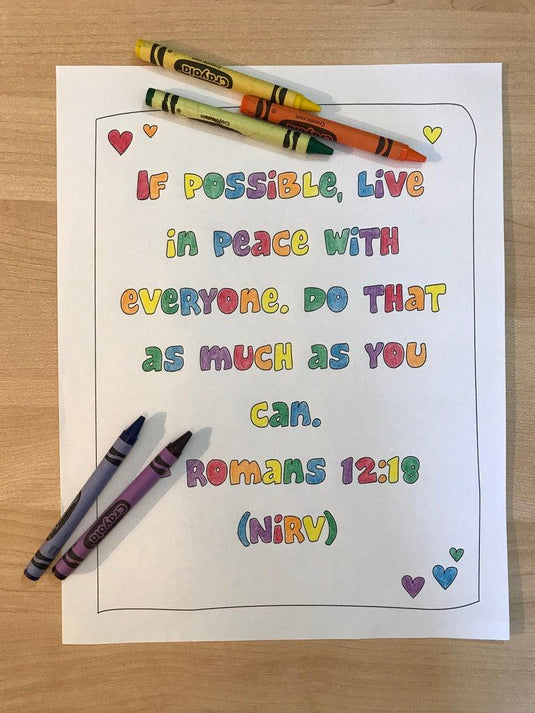 Crayola
If possible, live
in peace with
everyone. Do that
as much as you
can.
Romans 12:18
(NiRV)
Crayola